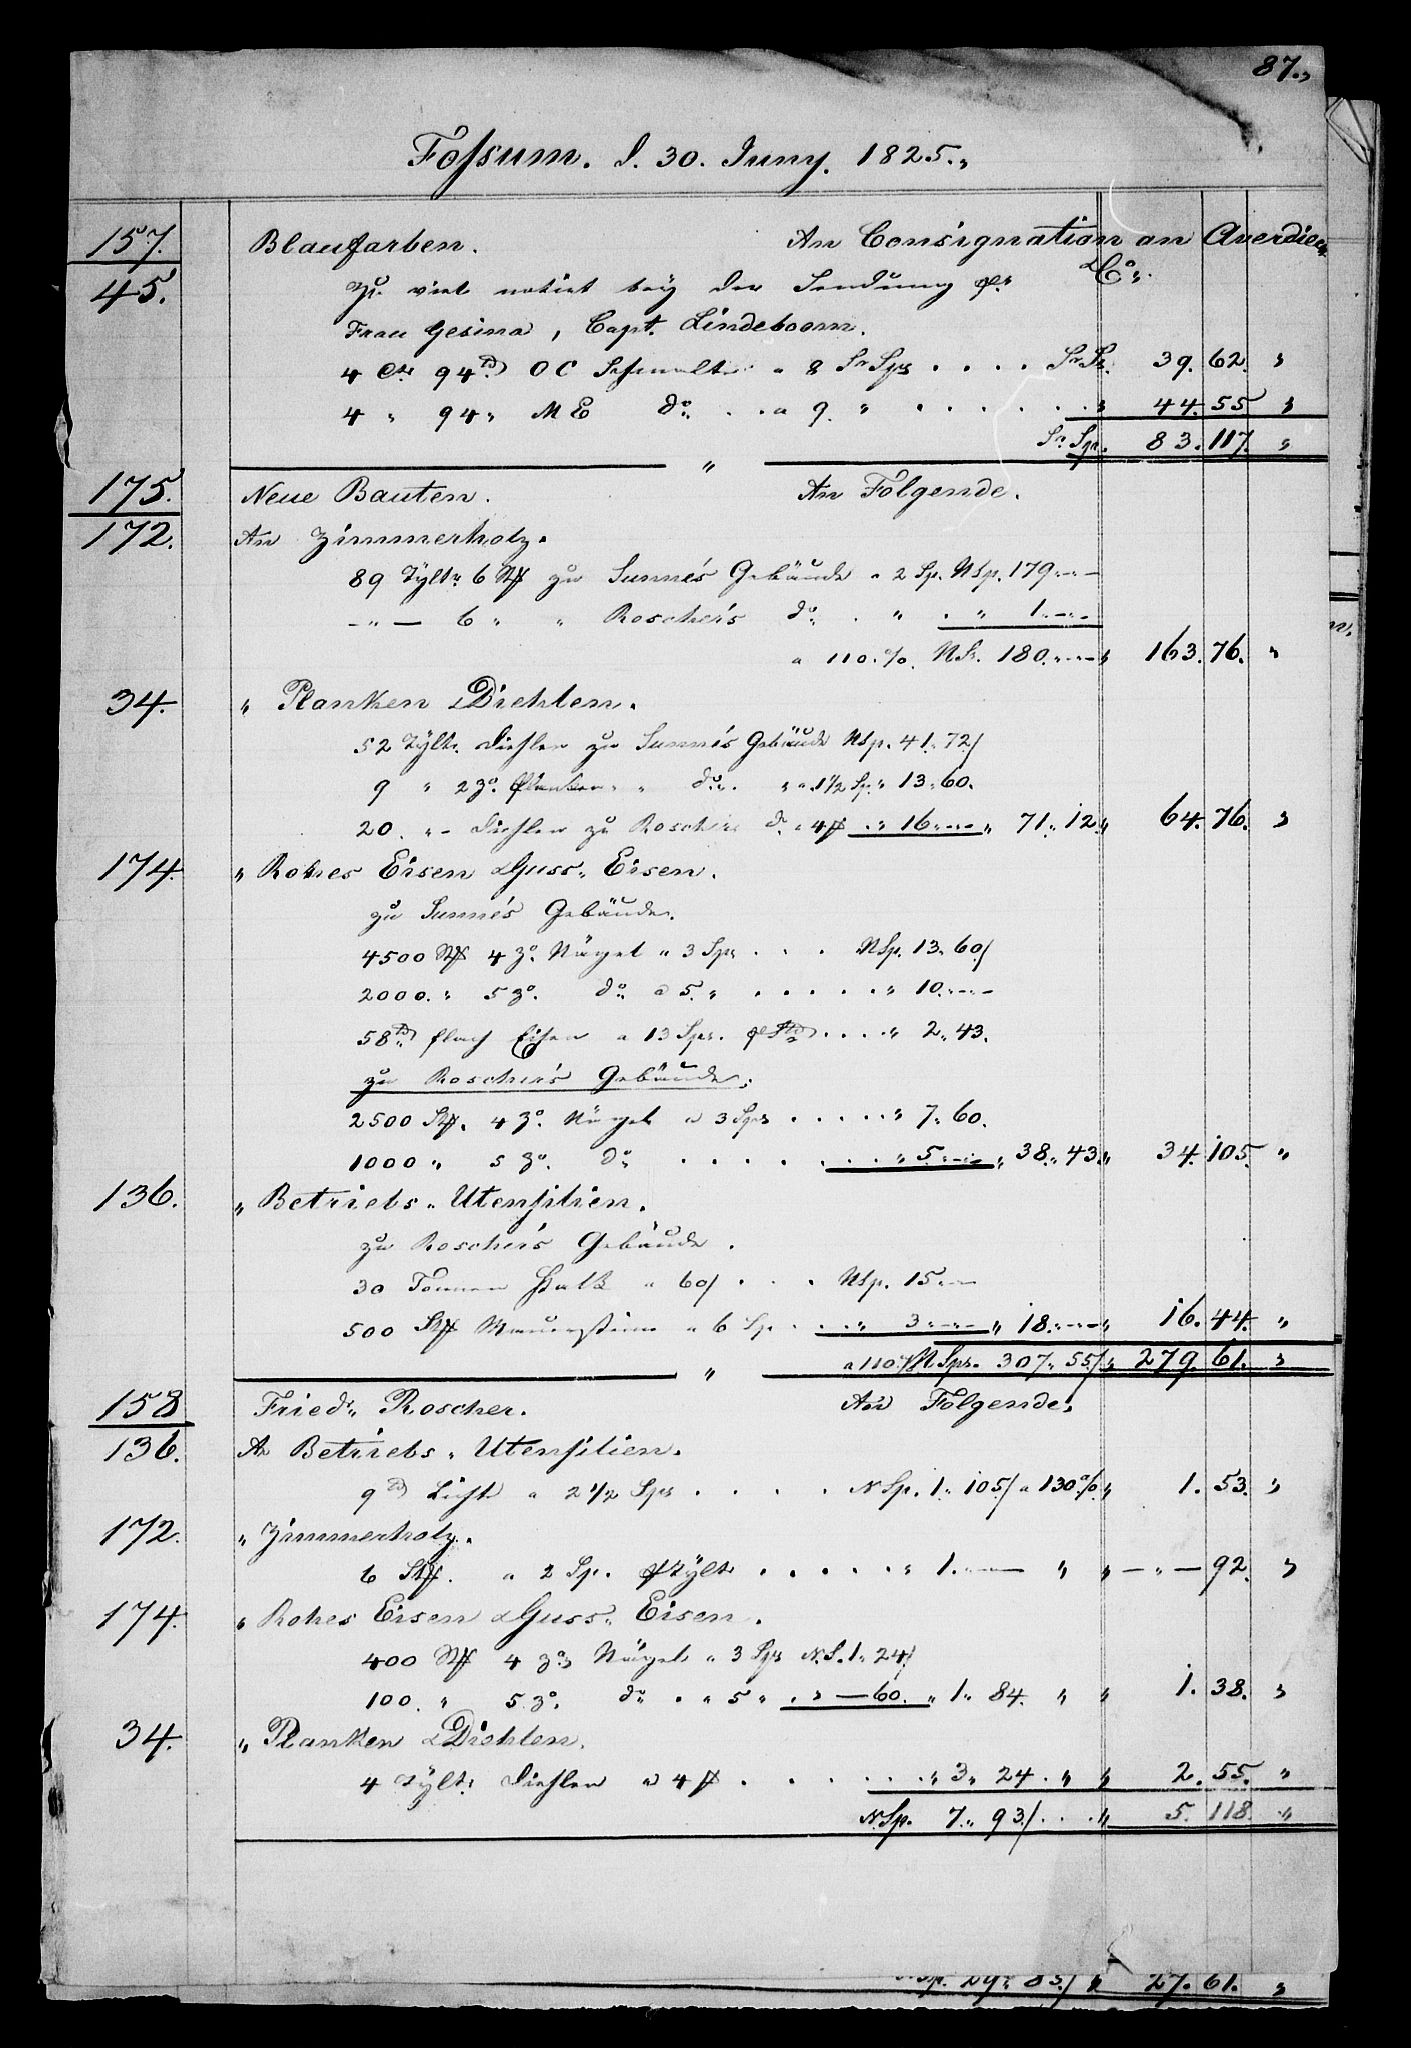 87.
Fossum. d. 30. Juny. 1825.
157. Blaufarben. An Consignation an Averdieck
45. & Co.
Zu viel notirt bey der Sendung pr
Frau Gesina, Capt. Lindeboom.
4 Ctr 94 ℔ OC Schmalte a 8 Sr Sps . . . . Sr Sp. 39. 62. "
4 " 94 " ME do. . . a 9. " . . . . . . " 44. 55 "
Sr. Sp. 83. 117. "
175. Neue Bauten. An Folgende.
172. An Zimmerholz.
89 Tylt. 6 Stk zu Sunnés Gebäude a 2 Sp. NSp. 179.---
-"- 6 " " Roscher's do . " . " 1.---
a 110.%. NSp. 180.---" 163. 76. "
34. " Planken & Diehlen.
52 Tylt. Diehlen zu Sunnés Gebäude NSp. 41. 72/
9 " 2 zo. Planken. " do. " a 1 1/2 Sp. " 13. 60.
20. " - Diehlen zu Roschers do. a 4 . " 16.---" 71. 12. " 64. 76. "
174. " Rohes Eisen & Guss-Eisen.
zu Sunnés Gebäude.
4500 Stk 4 zo. Nägel a 3 Sps . . . NSp. 13. 60/
2000. " 5 zo. do a 5. " . . . . . " 10.---
58 ℔ flach Eisen a 13 Sps. . . . . " 2. 43.
zu Roscher's Gebäude.
2500 Stk. 4 zo. Nägel a 3 Sps . . . . . " 7. 60.
1000 " 5 zo. do . . . . . . . " 5.---" 38. 43. " 34. 105. "
136. " Betriebs-Utensilien.
zu Roscher's Gebäude.
30 Tonnen Kalk a 60/ . . . NSp. 15.--
500 Stk Mauersteine a 6 Sp . . . " 3.---" 18.---" 16. 44. "
a 110.% N. Sps. 307. 55/ " 279. 61. "
158 Friedr. Roscher. An Folgende.
136. An Betriebs-Utensilien.
9 ℔ Licht a 2 1/2 Sps . . . . N Sp. 1. 105/ a 130% " 1. 53. "
172. " Zimmerholz.
6 Stk. a 2 Sp. p Tylt . . . . . " 1.--- " " -"- 92. "
174. " Rohes Eisen & Guss-Eisen.
400 Stk 4 zo Nägel a 3 Sps N.S. 1. 24/
100. " 5 zo. do . a 5 " . " - 60. " 1. 84. " " 1. 38. "
34. " Planken & Diehlen.
4 Tylt. Diehlen a 4 . . . . . . . " 3. 24. " " 2. 55. "
N.Sp. 7. 93/ . . " 5. 118. "
NSp. 29. 83/ " 27. 61. "